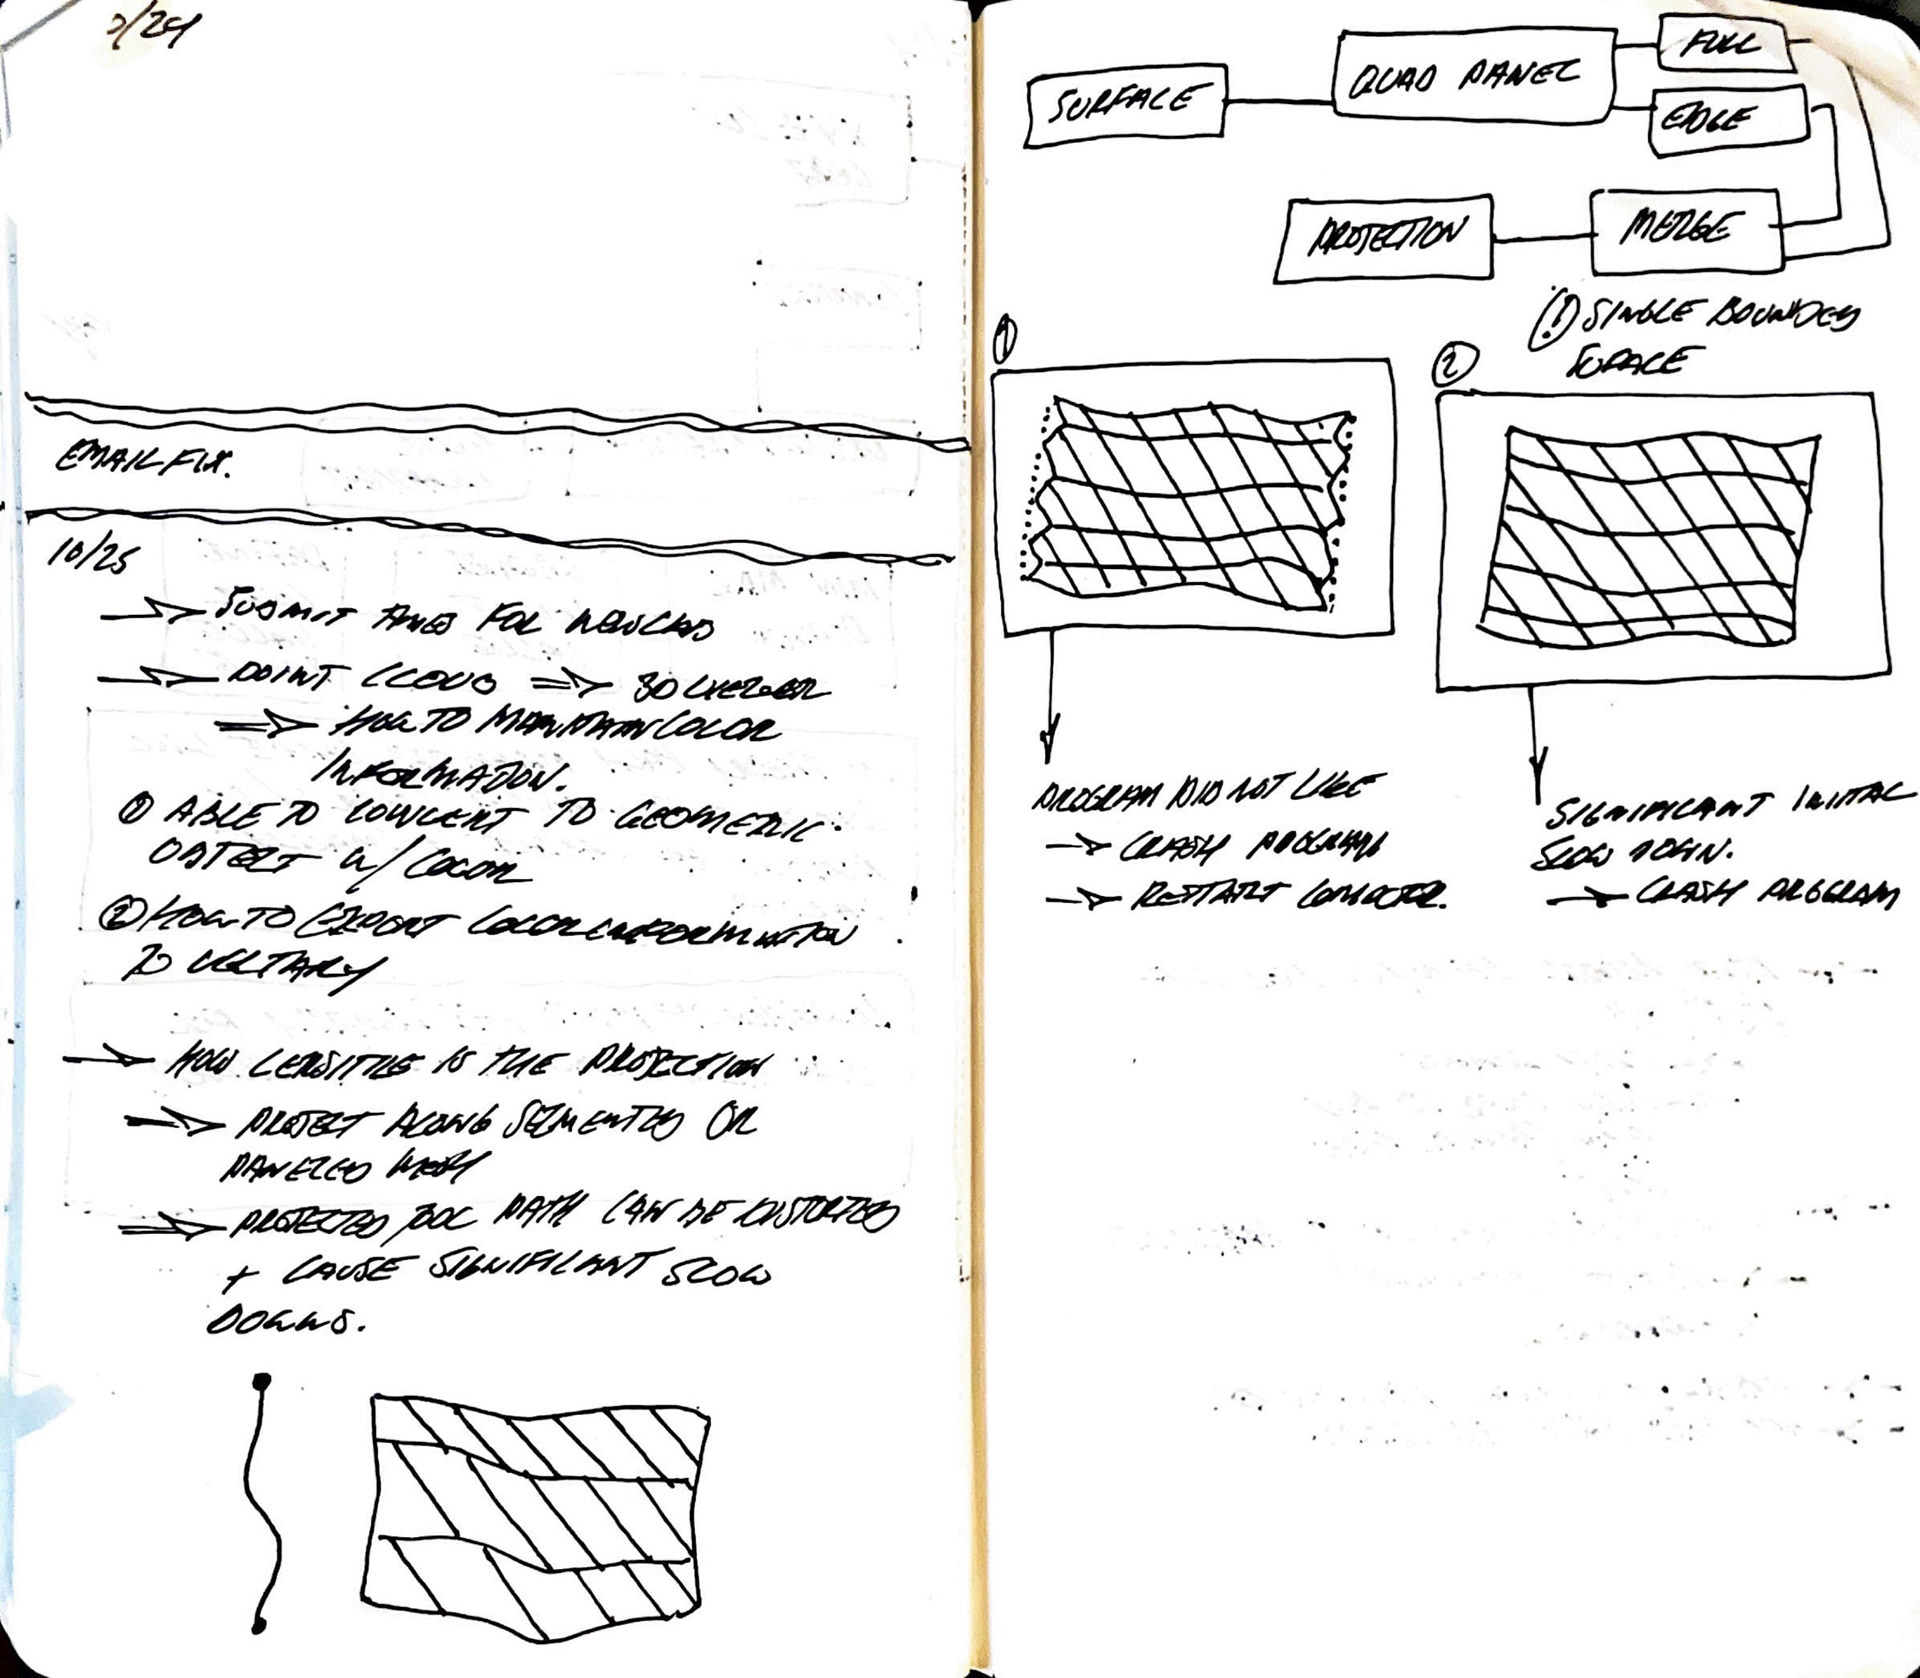 EMAIL FIX.
10/25
SUBMIT FOR
POINT CLOUD ⇒ 3D
⇒ HOW TO MAINTAIN COLOR
INFORMATION.
① ABLE TO CONVERT TO GEOMETRIC
OBJECT W/ COLOR
② HOW TO EXPORT COLOR INFORMATION
TO
HOW SENSITIVE IS THE PROJECTION
PROJECT ALONG SEGMENTED OR
PANELED MESH
PROJECTED TOOL PATH CAN BE DISTORTED
+ CAUSE SIGNIFICANT SLOW
DOWNS.
SURFACE
QUAD PANEL
FULL
EDGE
MERGE
PROJECTION
(!) SINGLE BOUNDED
SURFACE
①
②
PROGRAM DID NOT LIKE
→ CRASH PROGRAM
→ RESTART COMPUTER.
SIGNIFICANT INITIAL
SLOW DOWN.
→ CRASH PROGRAM